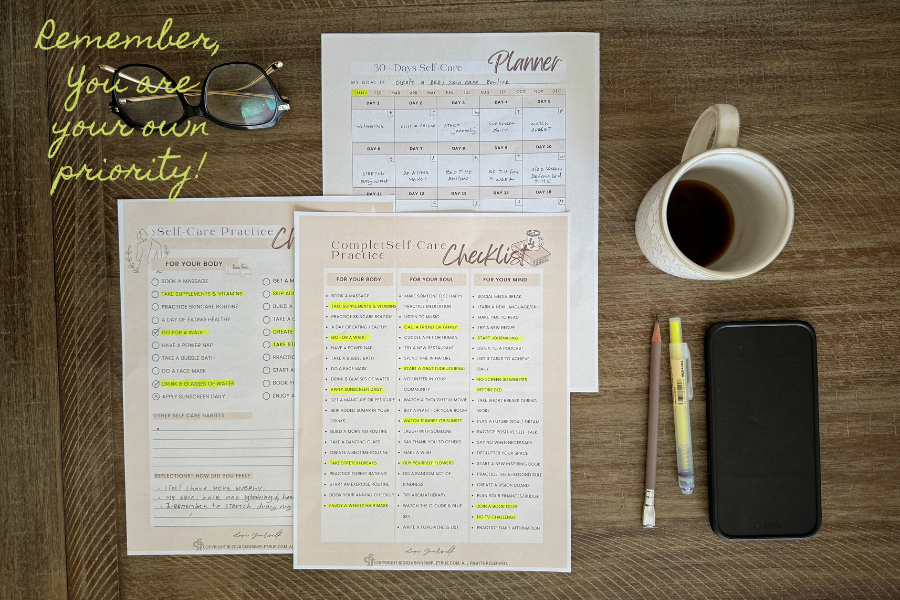 Remember,
You are
your own
priority!
30 - Days Self-Care Planner
MY GOAL IS CREATE A BODY SKIN CARE ROUTINE
JAN FEB MAR APR MAY JUN JUL AUG SEP OCT NOV DEC
DAY 1 DAY 2 DAY 3 DAY 4 DAY 5
CALL A FRIEND START Journaling Sunscreen daily WATCH SUNSET
DAY 6 DAY 7 DAY 8 DAY 9 DAY 10
STRETCH DO A HAIR MASK BED TIME ROUTINE NO TV FOR 1 WEEK
DAY 11 DAY 12 DAY 13 DAY 14 DAY 15
Self-Care Practice
FOR YOUR BODY
BOOK A MASSAGE
TAKE SUPPLEMENTS & VITAMINS
PRACTICE SKINCARE ROUTINE
A DAY OF EATING HEALTHY
GO FOR A WALK
HAVE A POWER NAP
TAKE A BUBBLE BATH
DO A FACE MASK
DRINK 8 GLASSES OF WATER
APPLY SUNSCREEN DAILY
OTHER SELF CARE HABITS
REFLECTIONS- HOW DID YOU FEEL?
I feel I have more energy
My skin, hair are glowing &
I remember to stretch during my
love yourself
COPYRIGHT © 2024 SKINSIMPLETRUE.COM. ALL
CompletSelf-Care
Practice Checklist
FOR YOUR BODY
BOOK A MASSAGE
TAKE SUPPLEMENTS & VITAMINS
PRACTICE SKINCARE ROUTINE
A DAY OF EATING HEALTHY
GO FOR A WALK
HAVE A POWER NAP
TAKE A BUBBLE BATH
DO A FACE MASK
DRINK 8 GLASSES OF WATER
APPLY SUNSCREEN DAILY
GET A MANICURE OR PEDICURE
SKIP ADDED SUGAR IN YOUR
DRINKS
BUILD A MORNING ROUTINE
TAKE A DANCING CLASS
CREATE A BEDTIME ROUTINE
TAKE STRETCH BREAKS
PRACTICE FOREST BATHING
START AN EXERCISE ROUTINE
BOOK YOUR ANNUAL CHECKUP
ENJOY A WEEKLY HAIR MASK
FOR YOUR SOUL
MAKE SOMEONE ELSE HAPPY
PRACTICE MEDITATION
LISTEN TO MUSIC
CALL A FRIEND OR FAMILY
CUDDLE A PET OR HUMAN
TRY A NEW RESTAURANT
SPEND TIME IN NATURE
START A GRATITUDE JOURNAL
VOLUNTEER IN YOUR
COMMUNITY
WATCH A THOUGHTFUL MOVIE
BUY A PLANT FOR YOUR ROOM
WATCH SUNRISE OR SUNSET
LAUGH WITH SOMEONE
SAY THANK YOU TO OTHERS
MAKE A WISH
BUY YOURSELF FLOWERS
DO A RANDOM ACT OF
KINDNESS
TRY AROMATHERAPY
WATCH THE CLOUDS & BLUE
SKY
WRITE A FORGIVENESS LIST
FOR YOUR MIND
SOCIAL MEDIA BREAK
LEARN A NEW LANGUAGE/SKILL
MAKE TIME TO READ
TRY A NEW RECIPE
START JOURNALING
LISTEN TO A PODCAST
LIST 3 TASKS TO ACHIEVE
DAILY
NO SCREEN 30 MINUTES
BEFORE BED
TAKE SHORT BREAKS DURING
WORK
PLAN A FUTURE GOAL / DREAM
PRACTICE POSITIVE SELF-TALK
SAY NO WHEN NECESSARY
DECLUTTER YOUR SPACE
START A NEW INSPIRING BOOK
CREATE A VISION BOARD
PLAN YOUR FINANCES/BUDGET
JOIN A BOOK CLUB
NO TV CHALLENGE
PRACTICE DAILY AFFIRMATION
love yourself
COPYRIGHT © 2024 SKINSIMPLETRUE.COM. ALL RIGHTS RESERVED.